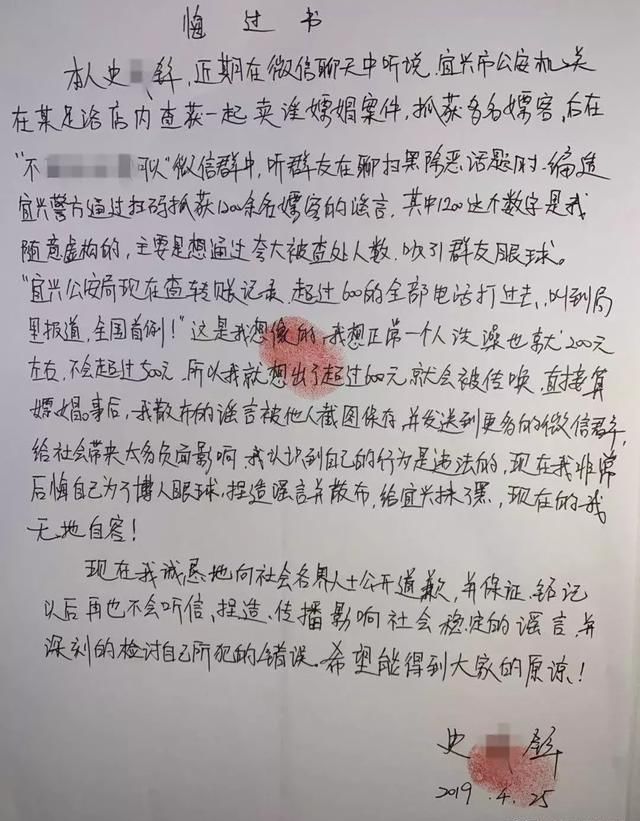 悔过书
本人史 鋅,近期在微信聊天中听说,宜兴市公安机关
在某足浴店内查获一起卖淫嫖娼案件,抓获多名嫖客,后在
"不 可以"微信群中,听群友在聊扫黑除恶话题时,编造
宜兴警方通过扫码抓获1200余名嫖客的谣言,其中1200这个数字是我
随意虚构的,主要是想通过夸大被查处人数,吸引群友眼球。
"宜兴公安局现在查转账记录,超过600的全部电话打过去,叫到局
里报道,全国首例!"这是我想像的,我想正常一个人洗澡也就200元
左右,不会超过500元,所以我就想出了超过600元就会被传唤,直接算
嫖娼。事后,我散布的谣言被他人截图保存,并发送到更多的微信群,
给社会带来太多负面影响,我认识到自己的行为是违法的,现在我非常
后悔自己为了博人眼球,捏造谣言并散布,给宜兴抹了黑,现在的我
无地自容!
现在我诚恳地向社会各界人士公开道歉,并保证,铭记
以后再也不会听信、捏造、传播影响社会稳定的谣言,并
深刻的检讨自己所犯的错误。希望能得到大家的原谅!
史 鋅
2019.4.25